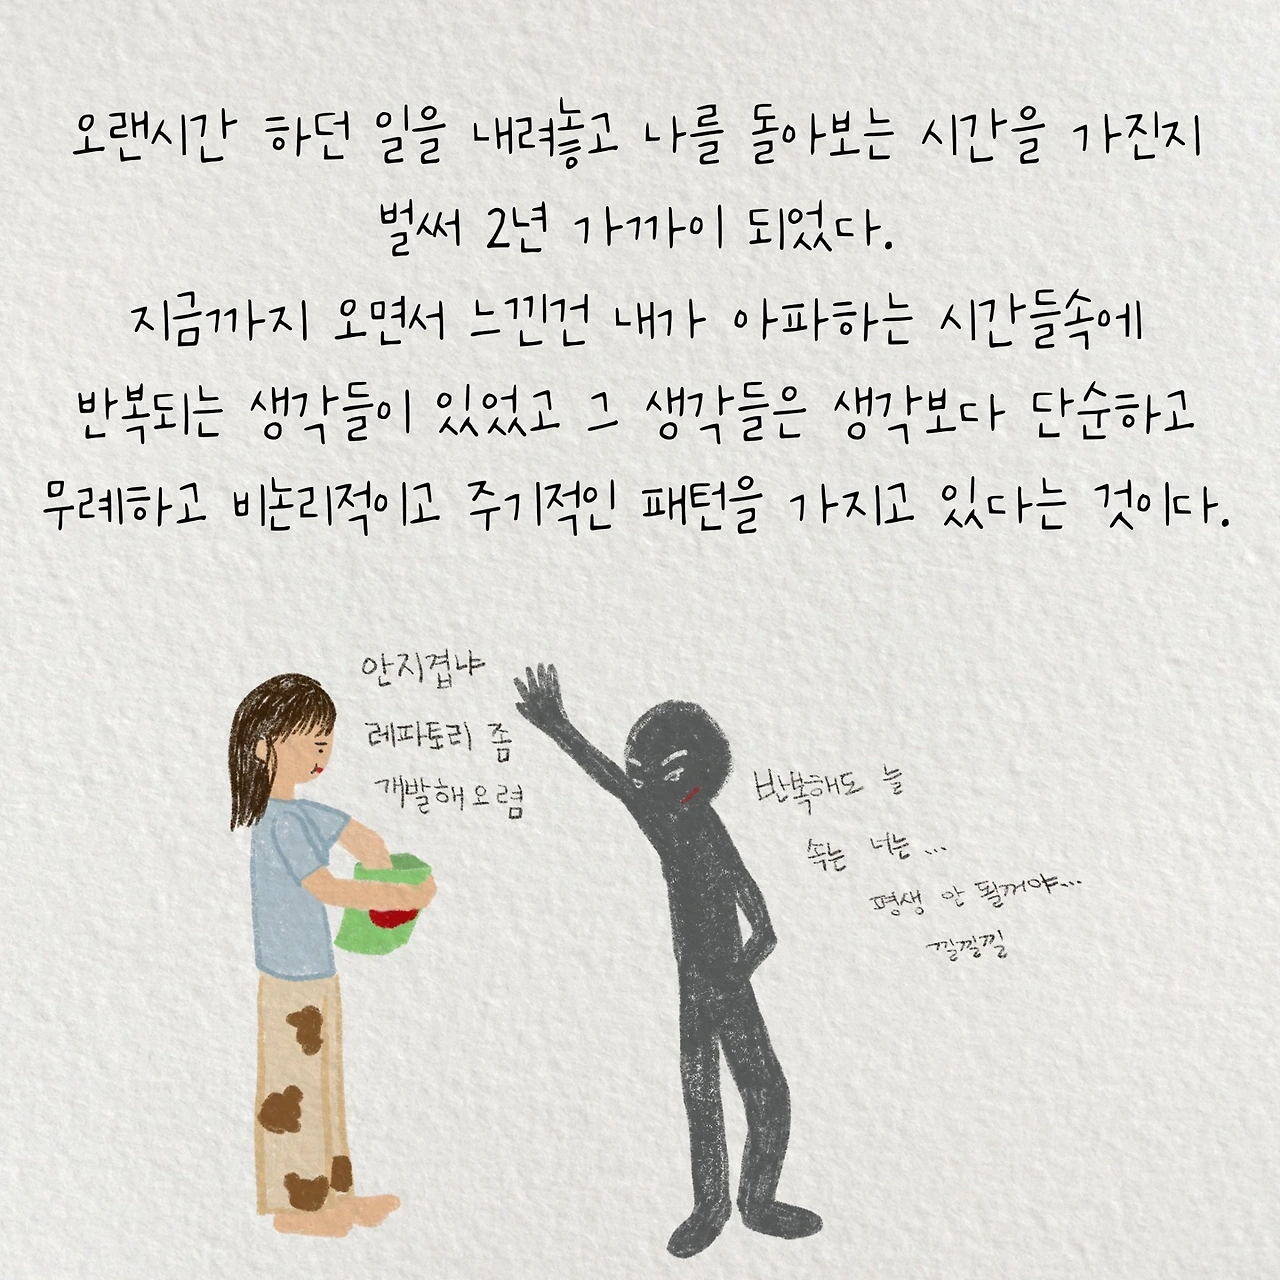 오랜시간 하던 일을 내려놓고 나를 돌아보는 시간을 가진지
벌써 2년 가까이 되었다.
지금까지 오면서 느낀건 내가 아파하는 시간들속에
반복되는 생각들이 있었고 그 생각들은 생각보다 단순하고
무례하고 비논리적이고 주기적인 패턴을 가지고 있다는 것이다.
안지겹냐
레파토리 좀
개발해오렴
반복해도 늘
속는 너는...
평생 안 될꺼야...
낄낄낄